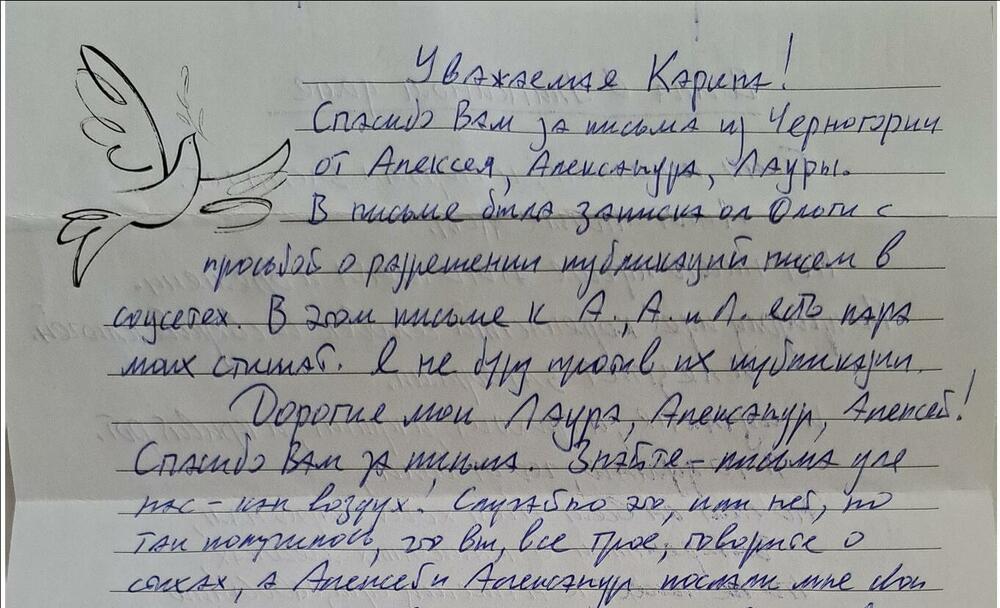 Уважаемая Карина!
Спасибо Вам за письма из Черногории
от Алексея, Александра, Лауры.
В письме была записка от Ольги с
просьбой о разрешении публикаций писем в
соцсетях. В этом письме к А., А. и Л. есть пара
моих стишат. Я не буду против их публикации.
Дорогие мои Лаура, Александр, Алексей!
Спасибо Вам за письма. Знайте – письма для
нас – как воздух! Случайно это, или нет, но
так получилось, что вы, все трое, говорите о
стихах, а Алексей и Александр послали мне свои